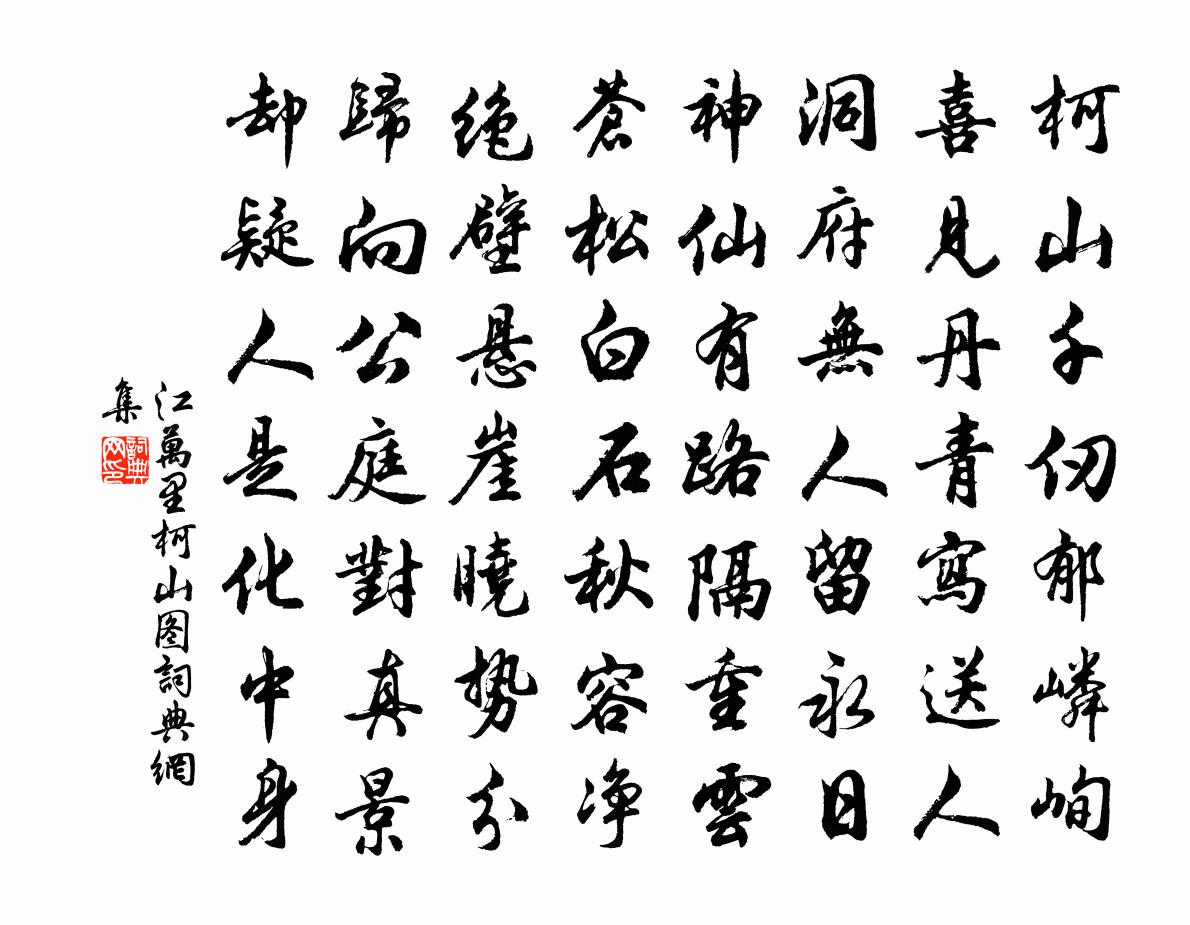 柯山千仞郁嶙峋
喜見丹青寫送人
洞府無人留永日
神仙有路隔重雲
蒼松白石秋容净
绝壁悬崖曉势分
歸向公庭對真景
却疑人是化中身
江萬里柯山图詞典網
集
詞典网印